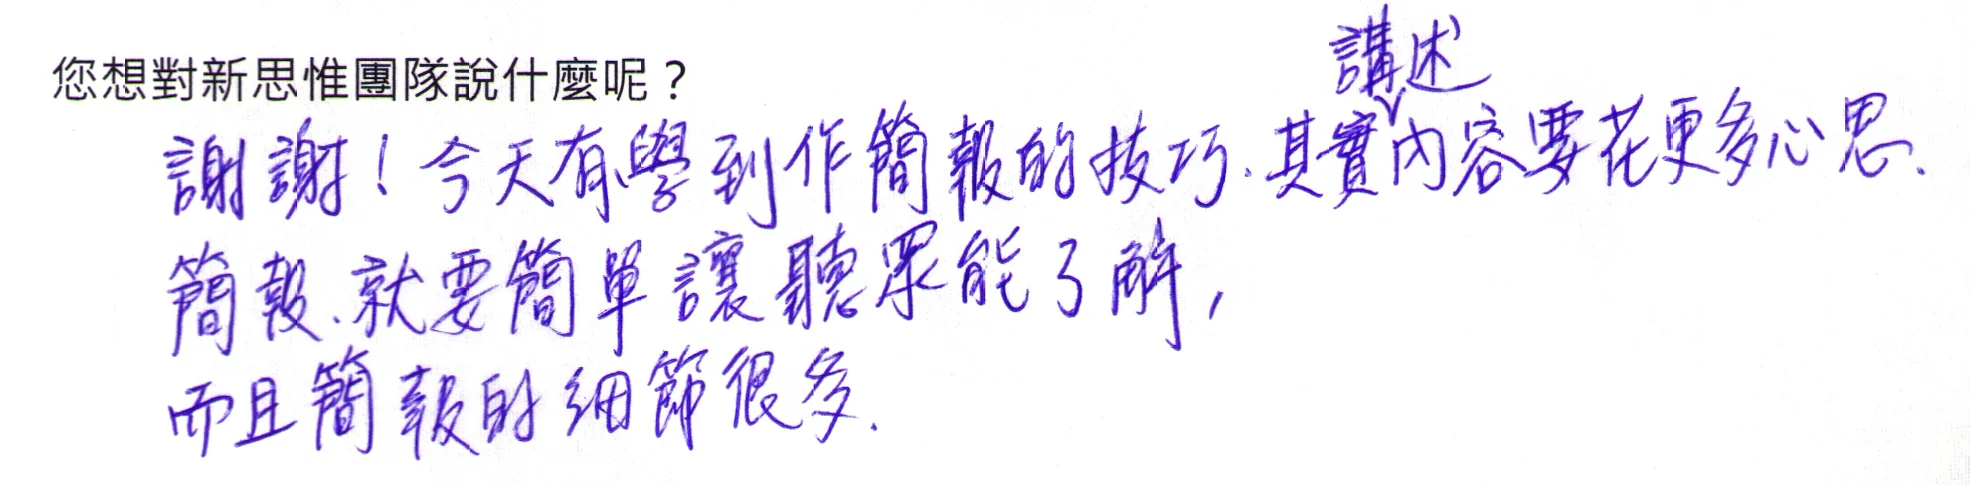 您想對新思惟團隊說什麼呢？
謝謝！今天有學到作簡報的技巧.其實講述內容要花更多心思.
簡報.就要簡單讓聽眾能了解,
而且簡報的細節很多.